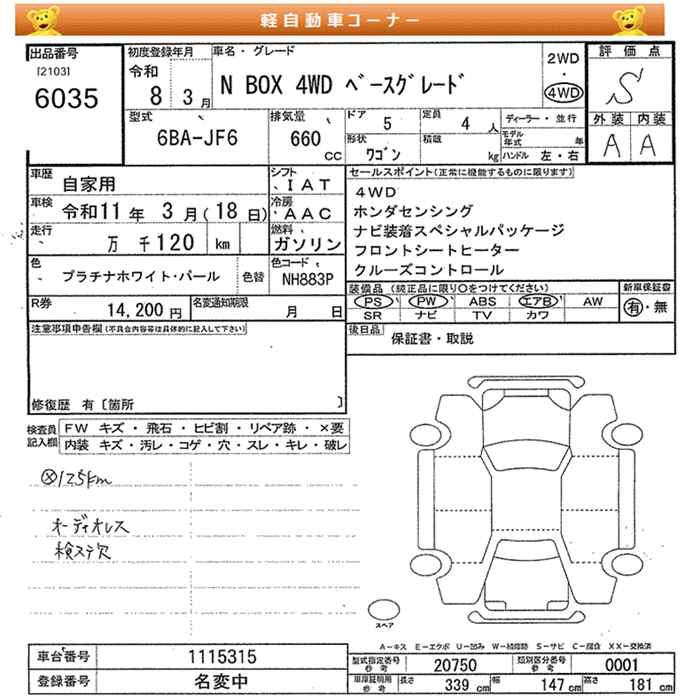 軽自動車コーナー
出品番号
[2103]
6035
初度登録年月
令和
8 3月
車名・グレード
N BOX 4WD ベースグレード
2WD
・
4WD
評価点
S
外装 内装
A A
型式
6BA-JF6
排気量
660
CC
ドア
5
定員
4
人
形状
ワゴン
積載
kg
ディーラー・並行
モデル
年式 年
ハンドル 左・右
車歴
自家用
シフト
IAT
車検
令和11年 3月(18日)
冷房
AAC
走行
万 千120 km
燃料
ガソリン
色
プラチナホワイト・パール
色替
色コード
NH883P
R券
14,200円
名変通知期限
月 日
セールスポイント(正常に機能するものに限ります)
4WD
ホンダセンシング
ナビ装着スペシャルパッケージ
フロントシートヒーター
クルーズコントロール
装備品(純正品に限り○をつけてください)
PS PW ABS エアB AW
SR ナビ TV カワ
新車保証書
有・無
後日品
保証書・取説
注意事項申告欄(不具合内容等は具体的に記入して下さい)
修復歴 有〔箇所 〕
検査員
記入欄
FW キズ・飛石・ヒビ割・リペア跡・×要
内装 キズ・汚レ・コゲ・穴・スレ・キレ・破レ
ⓧ125km
オーディオレス
検ステ欠
スペア
A-キズ E-エクボ U-凹み W-補修跡 S-サビ C-腐食 XX-交換済
車台番号
1115315
登録番号
名変中
型式指定番号
参考
20750
類別区分番号
参考
0001
車庫証明用
参考
長さ
339 cm
幅
147 cm
高さ
181 cm